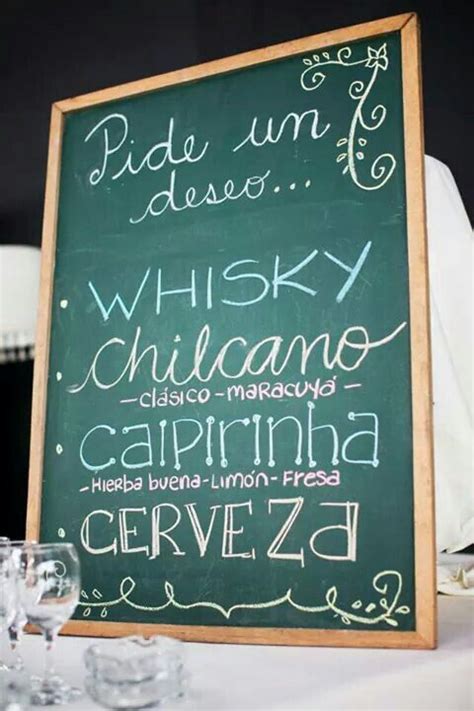 Pide un
deseo...
WHISKY
chilcano
-clásico-maracuyá-
caipirinha
-Hierba buena-Limón-Fresa
CERVEZa